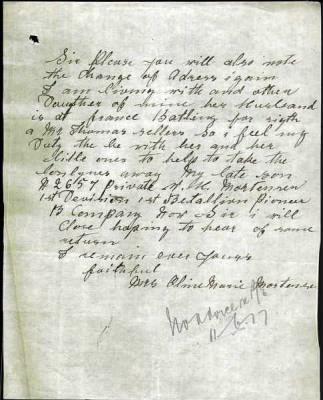 Sir Please you will also note
the Change of Adress igain
I am living with and other
Daughter of mine her Husband
is at france Batling for rigth
a Mr Thomas Sellers So i feel my
Duty the be with her and her
little ones to help to take the
lonlynes away My late Son
2657 Private Mortensen
1st Division 1st Battalion Pioneer
B Company Now Sir i will
Close hoping to hear of some
return
I remain ever yours
faithful
Mrs Aline Marie Mortensen
11.6.17